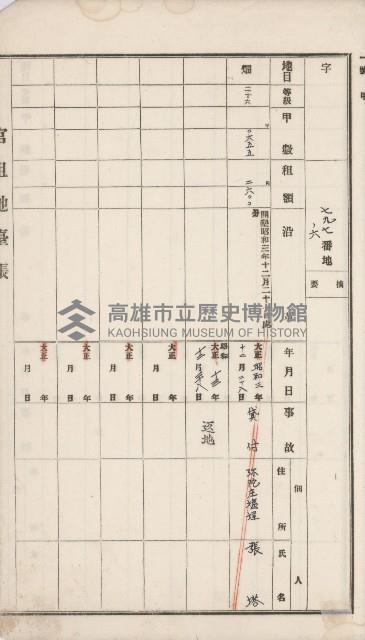 字
七九七ノ六番地
摘要
地目
等級
甲數
租額
沿
年月日
事故
佃人
住所
氏名
畑
二十六
甲
〇六五五
円
二六〇〇
開墾昭和三年十二月二十
大正昭和三年
十二月二十八日
貸付
弥陀庄塩埕
張塔
大正昭和十三年
十二月二十八日
返地
大正 年
月 日
大正 年
月 日
大正 年
月 日
大正 年
月 日
官租地臺帳
高雄市立歷史博物館
KAOHSIUNG MUSEUM OF HISTORY